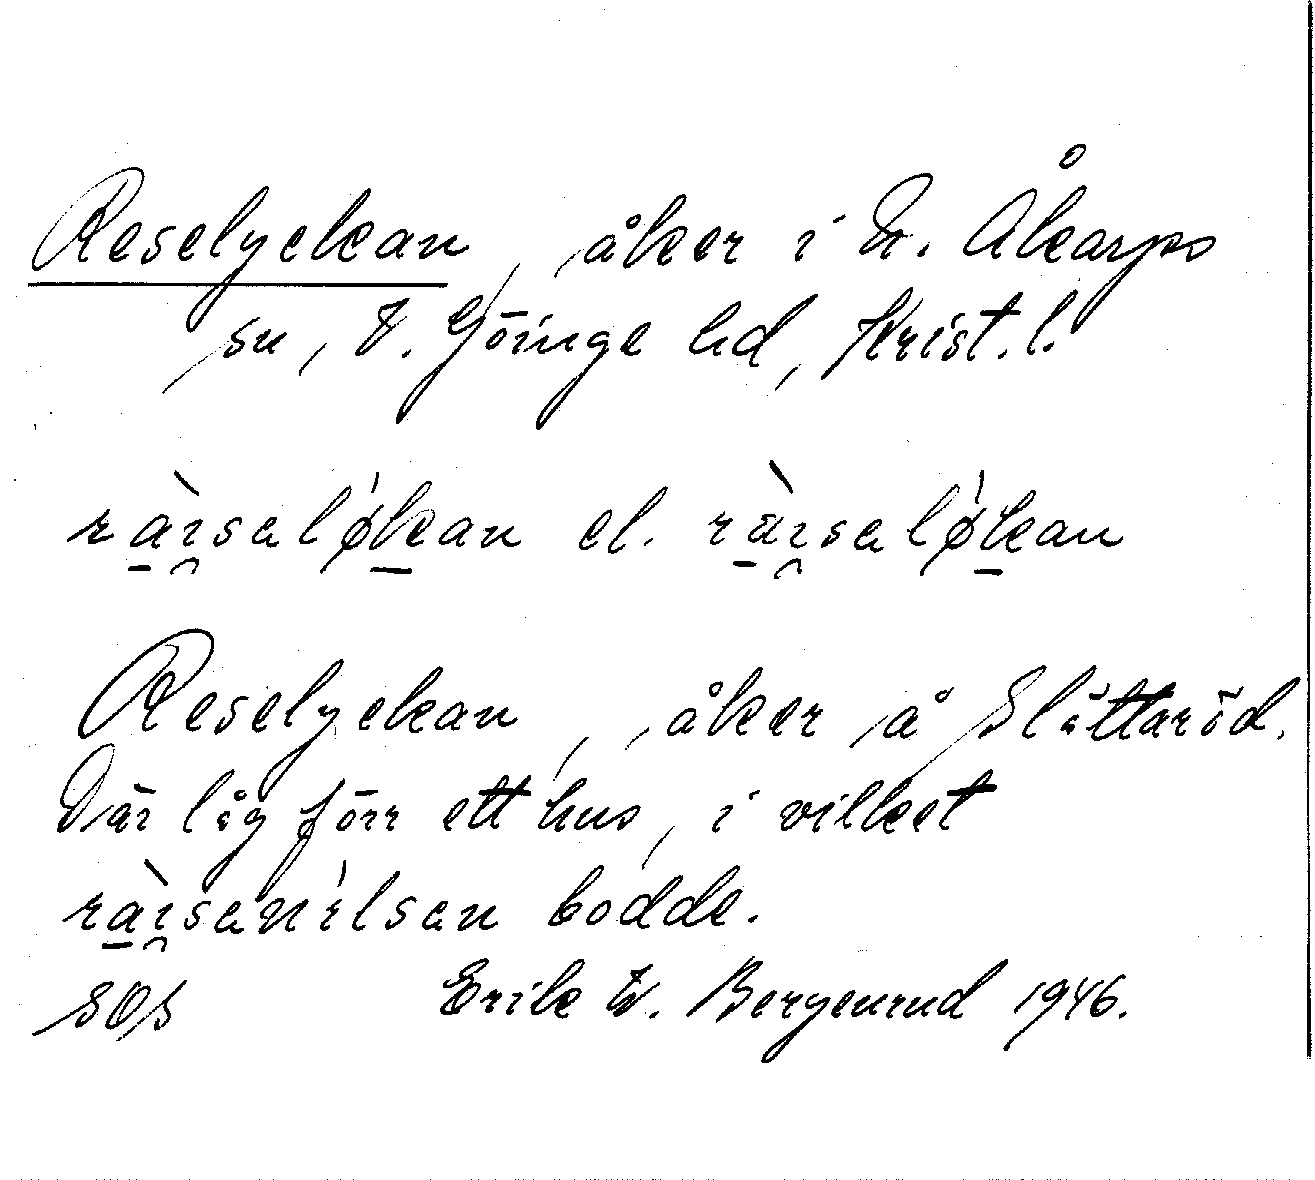 Reselyckan, åker i N. Åkarps
sn, V. Göinge hd, Krist. l.
ràisaløkan el. ràisaløkan
Reselyckan, åker å Slättaröd.
Där låg förr ett hus, i vilket
ràisanilsen bodde.
Erik W. Bergenrud 1946.